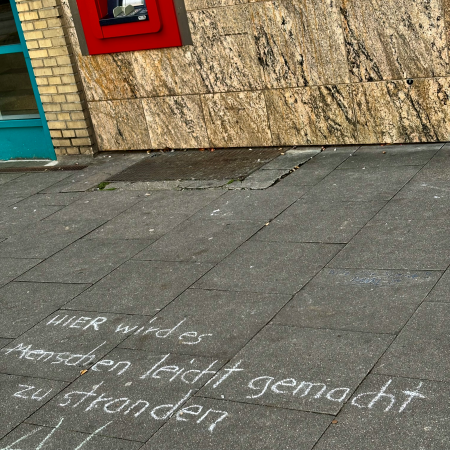 HIER wird es
Menschen leicht gemacht
zu stranden